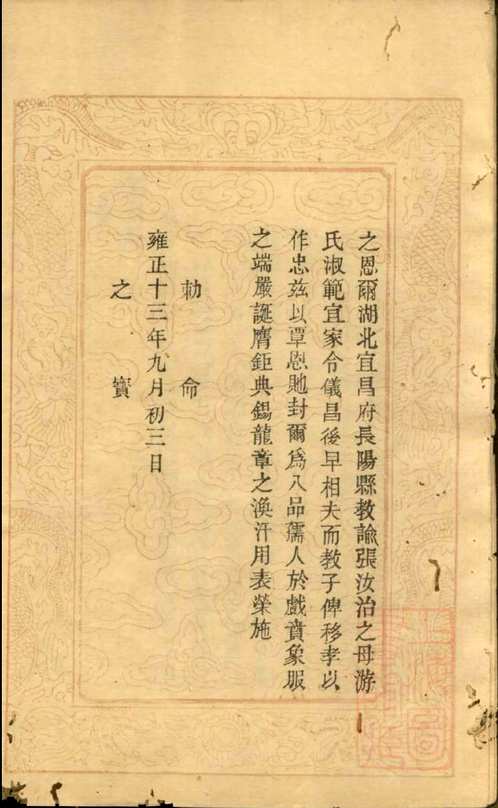 之恩爾湖北宜昌府長陽縣教諭張汝治之母游
氏淑範宜家令儀昌後早相夫而教子俾移孝以
作忠兹以覃恩貤封爾爲八品孺人於戲賁象服
之端嚴誕膺鉅典錫龍章之渙汗用表榮施
勅命
雍正十三年九月初三日
之寶